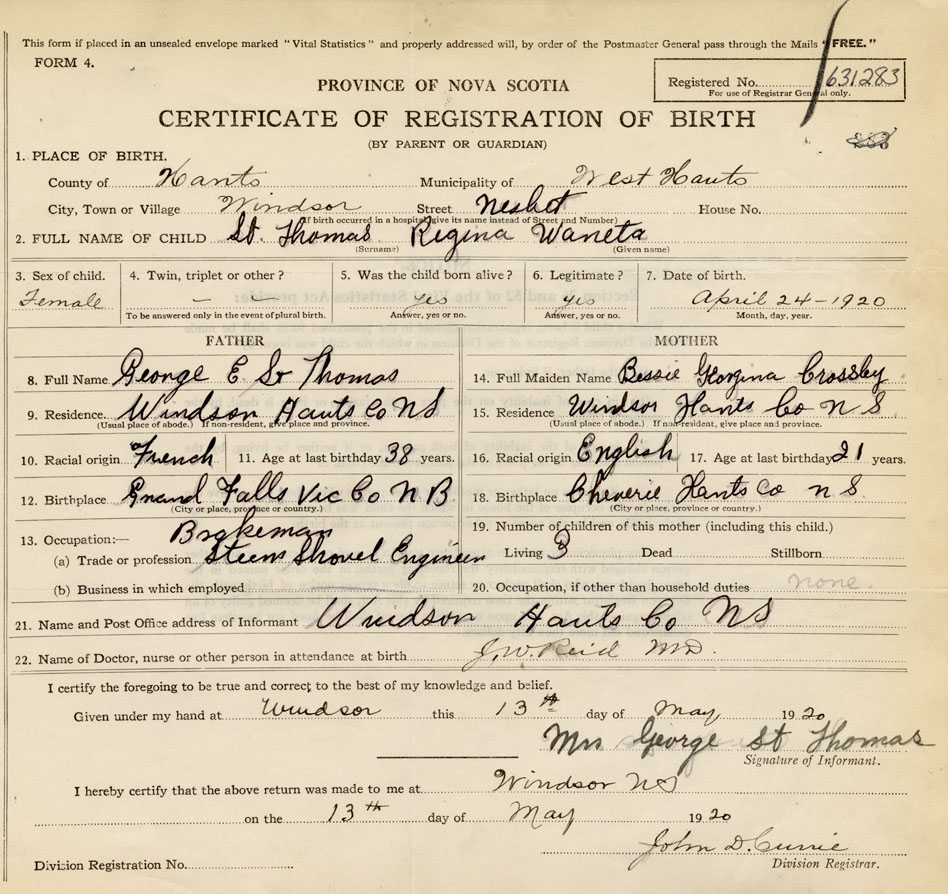 This form if placed in an unsealed envelope marked "Vital Statistics" and properly addressed will, by order of the Postmaster General pass through the Mails "FREE."
FORM 4.
Registered No. 631283
For use of Registrar General only.
PROVINCE OF NOVA SCOTIA
CERTIFICATE OF REGISTRATION OF BIRTH
(BY PARENT OR GUARDIAN)
1. PLACE OF BIRTH.
County of Hants Municipality of West Hants
City, Town or Village Windsor Street Nesbet House No.
(If birth occurred in a hospital give its name instead of Street and Number)
2. FULL NAME OF CHILD St. Thomas Regina Waneta
(Surname) (Given name)
3. Sex of child. 4. Twin, triplet or other? 5. Was the child born alive? 6. Legitimate? 7. Date of birth.
Female — — yes yes April 24-1920
To be answered only in the event of plural birth. Answer, yes or no. Answer, yes or no. Month, day, year.
FATHER MOTHER
8. Full Name George E St Thomas 14. Full Maiden Name Bessie Georgina Crossley
9. Residence. Windson Hants Co N S 15. Residence Windsor Hants Co N S
(Usual place of abode.) If non-resident, give place and province. (Usual place of abode.) If non-resident, give place and province.
10. Racial origin French 11. Age at last birthday 38 years. 16. Racial origin English 17. Age at last birthday 21 years.
12. Birthplace Grand Falls Vic Co N B 18. Birthplace Cheverie Hants Co N S
(City or place, province or country.) (City or place, province or country.)
13. Occupation:— Brakeman 19. Number of children of this mother (including this child.)
(a) Trade or profession Steem Shovel Engineer Living 3 Dead Stillborn
(b) Business in which employed 20. Occupation, if other than household duties none.
21. Name and Post Office address of Informant Windson Hants Co N S
22. Name of Doctor, nurse or other person in attendance at birth J. W. Reid M.D.
I certify the foregoing to be true and correct to the best of my knowledge and belief.
Given under my hand at Windsor this 13th day of May 1920
Mrs George St Thomas
Signature of Informant.
I hereby certify that the above return was made to me at Windsor N S
on the 13th day of May 1920
John D. Currie
Division Registration No. Division Registrar.